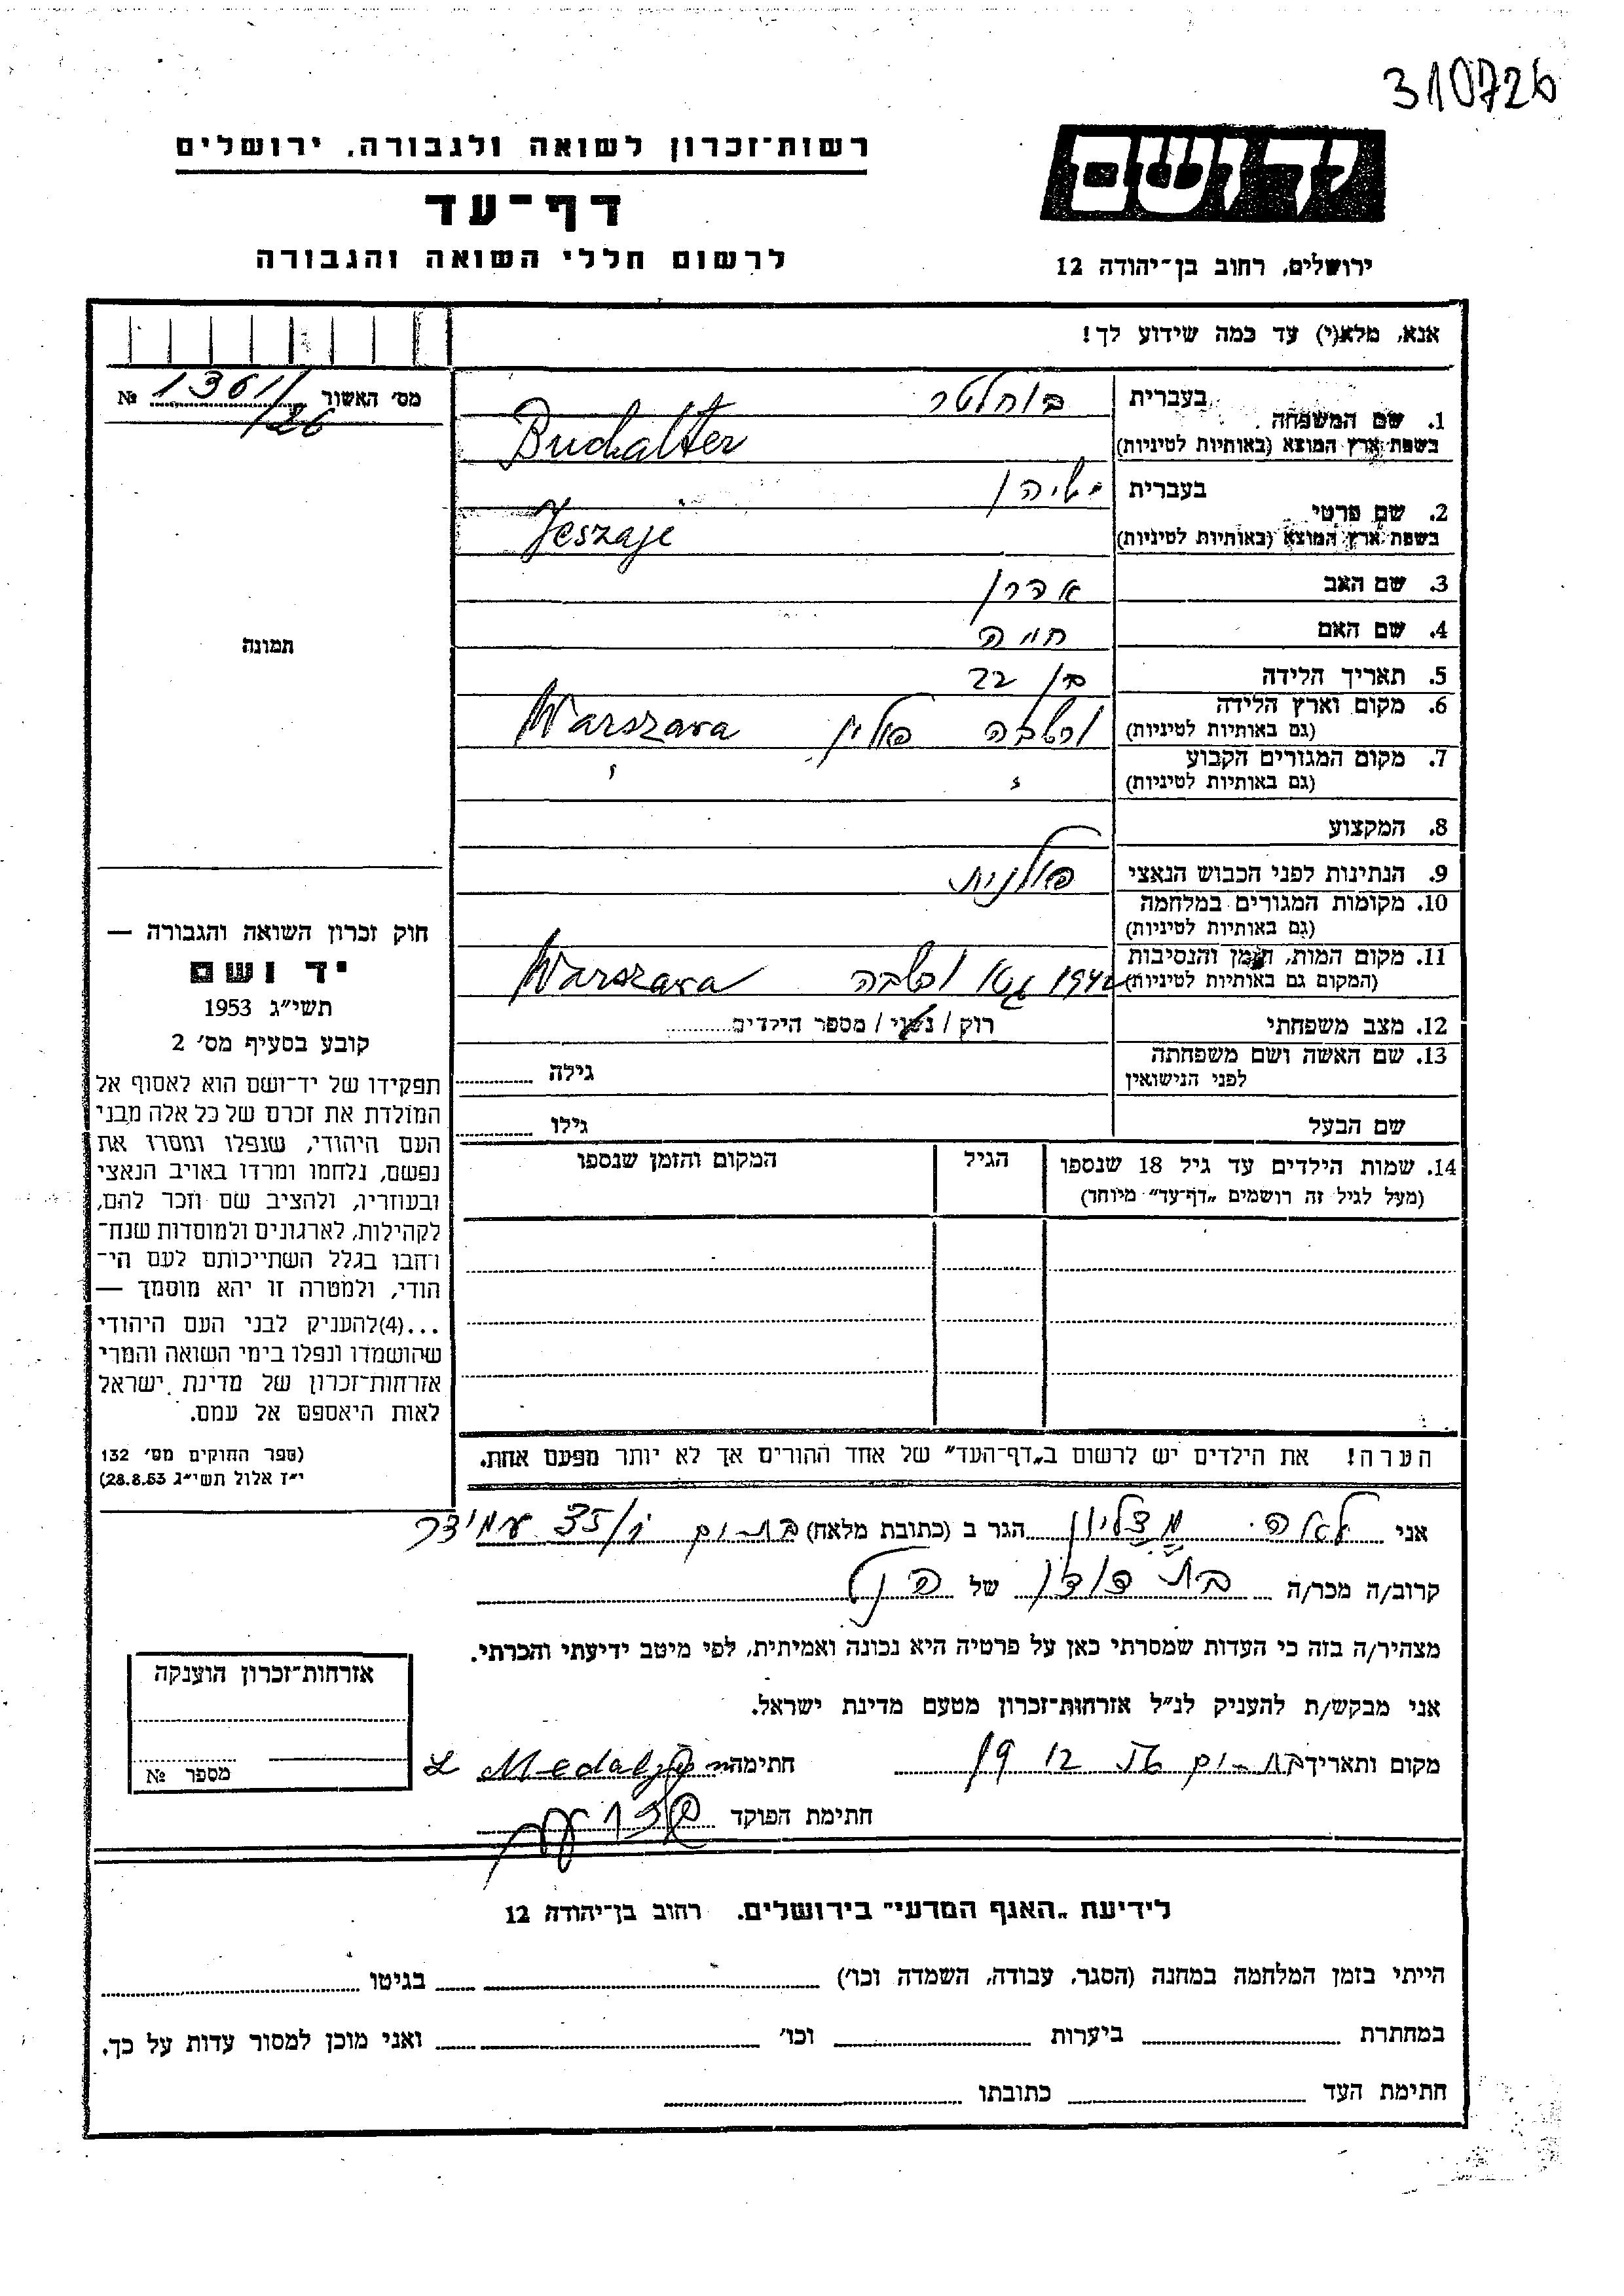 310726
יד ושם
רשות־זכרון לשואה ולגבורה, ירושלים
דף־עד
לרשום חללי השואה והגבורה
ירושלים, רחוב בן־יהודה 12
אנא, מלא(י) עד כמה שידוע לך!
מס׳ האשור 1361/26 №
1. שם המשפחה בעברית בוחלטר
בשפת ארץ המוצא (באותיות לטיניות) Buchalter
2. שם פרטי בעברית
בשפת ארץ המוצא (באותיות לטיניות) Jeszaje
3. שם האב אהרן
4. שם האם חיה
5. תאריך הלידה בן 22
6. מקום וארץ הלידה
(גם באותיות לטיניות) ורשבה פולין Warszawa
7. מקום המגורים הקבוע
(גם באותיות לטיניות)
8. המקצוע
9. הנתינות לפני הכבוש הנאצי פולנית
10. מקומות המגורים במלחמה
(גם באותיות לטיניות)
11. מקום המות, הזמן והנסיבות
(המקום גם באותיות לטיניות) 1942 גטו ורשבה Warszawa
12. מצב משפחתי רוק / נשוי / מספר הילדים
13. שם האשה ושם משפחתה
לפני הנישואין גילה
שם הבעל גילו
14. שמות הילדים עד גיל 18 שנספו הגיל המקום והזמן שנספו
(מעל לגיל זה רושמים „דף־עד״ מיוחד)
הערה! את הילדים יש לרשום ב„דף־העד״ של אחד ההורים אך לא יותר מפעם אחת.
תמונה
חוק זכרון השואה והגבורה —
יד ושם
תשי״ג 1953
קובע בסעיף מס׳ 2
תפקידו של יד־ושם הוא לאסוף אל
המולדת את זכרם של כל אלה מבני
העם היהודי, שנפלו ומסרו את
נפשם, נלחמו ומרדו באויב הנאצי
ובעוזריו, ולהציב שם וזכר להם,
לקהילות, לארגונים ולמוסדות שנח־
רחבו בגלל השתייכותם לעם הי־
הודי, ולמטרה זו יהא מוסמך —
...(4)להעניק לבני העם היהודי
שהושמדו ונפלו בימי השואה והמרי
אזרחות־זכרון של מדינת ישראל
לאות היאספם אל עמם.
(ספר החוקים מס׳ 132
י״ז אלול תשי״ג 28.8.53)
אני לאה הגר ב (כתובת מלאה) בת-ים 35 עמידר
קרוב/ה מכר/ה בת דודן של הנ"ל
מצהיר/ה בזה כי העדות שמסרתי כאן על פרטיה היא נכונה ואמיתית, לפי מיטב ידיעתי והכרתי.
אני מבקש/ת להעניק לנ״ל אזרחות־זכרון מטעם מדינת ישראל.
מקום ותאריך בת-ים 12 19 חתימה
חתימת הפוקד
אזרחות־זכרון הוענקה
מספר №
לידיעת „האגף המדעי״ בירושלים, רחוב בן־יהודה 12
הייתי בזמן המלחמה במחנה (הסגר, עבודה, השמדה וכו׳) בגיטו
במחתרת ביערות וכו׳ ואני מוכן למסור עדות על כך.
חתימת העד כתובתו